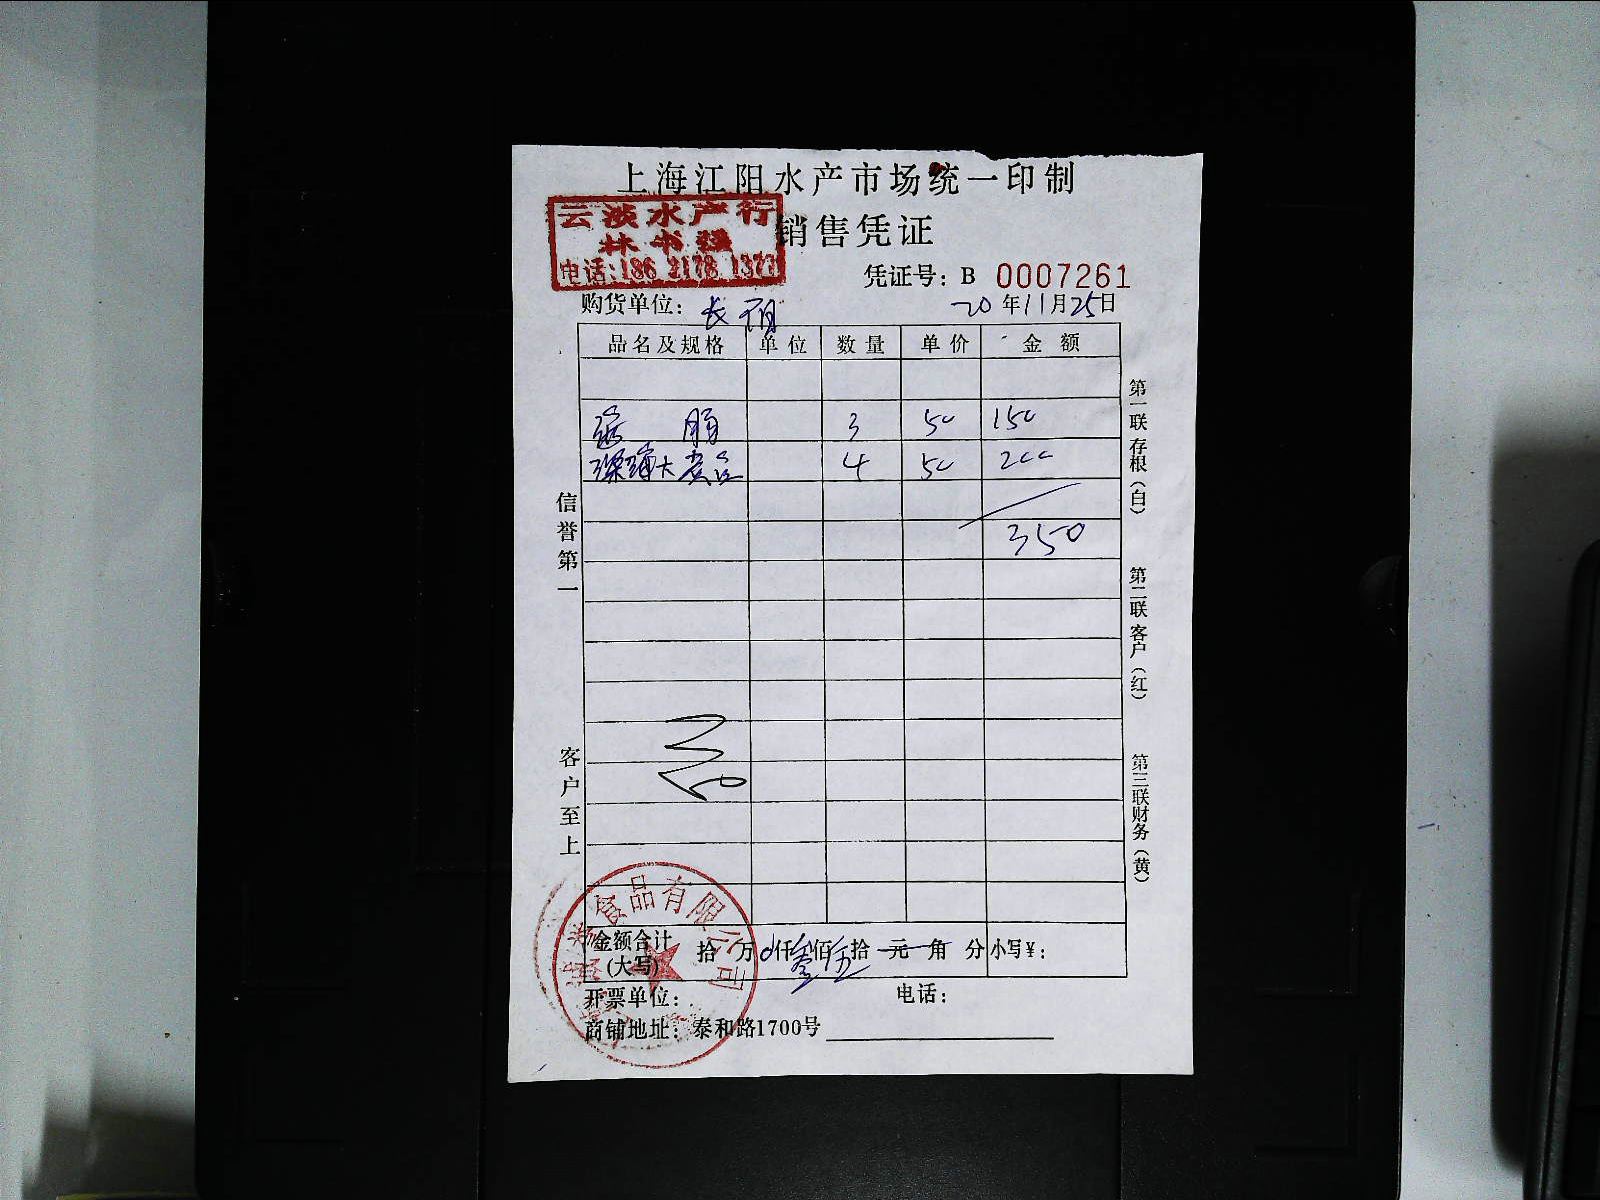 上海江阳水产市场统一印制
云淡水产行
林书强
电话:186 2178 1373
销售凭证
凭证号: B 0007261
购货单位: 长
20 年 11 月 25 日
品名及规格 单位 数量 单价 金额
3 50 150
大黄 4 50 200
350
信誉第一
客户至上
第一联 存根 (白)
第二联 客户 (红)
第三联 财务 (黄)
食品有限公司
金额合计 (大写) 拾 万 0 仟 叁 佰 伍 拾 元 角 分 小写¥:
开票单位: 电话:
商铺地址: 泰和路1700号